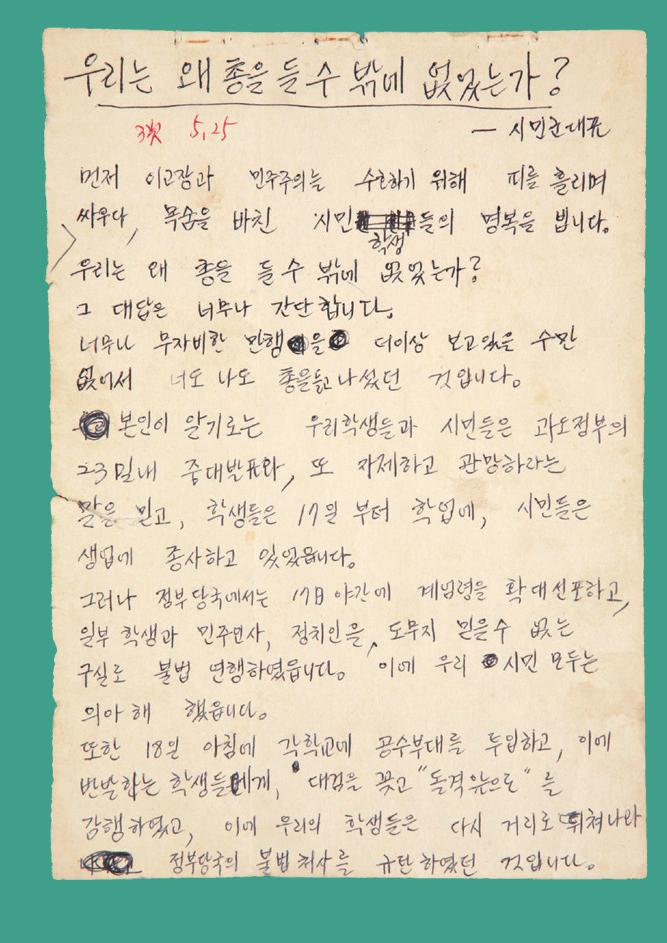 우리는 왜 총을 들 수 밖에 없었는가?
3次 5.25
— 시민군대표
먼저 이고장과 민주주의는 수호하기 위해 피를 흘리며
싸우다, 목숨을 바친 시민 학생들의 명복을 빕니다.
우리는 왜 총을 들 수 밖에 없었는가?
그 대답은 너무나 간단합니다.
너무나 무자비한 만행을 더이상 보고있을 수만
없어서 너도 나도 총을들고 나섰던 것입니다.
본인이 알기로는 우리학생들과 시민들은 과도정부의
23일내 중대발표와, 또 자제하고 관망하라는
말을 믿고, 학생들은 17일 부터 학업에, 시민들은
생업에 종사하고 있었읍니다.
그러나 정부당국에서는 17日 야간에 계엄령을 확대선포하고,
일부 학생과 민주인사, 정치인을, 도무지 믿을수 없는
구실로 불법 연행하였읍니다. 이에 우리 시민 모두는
의아해 했읍니다.
또한 18일 아침에 각학교에 공수부대를 투입하고, 이에
반발하는 학생들에게, 대검을 꽂고 "돌격앞으로" 를
감행하였고, 이에 우리의 학생들은 다시 거리로 뛰쳐나와
정부당국의 불법처사를 규탄하였던 것입니다.